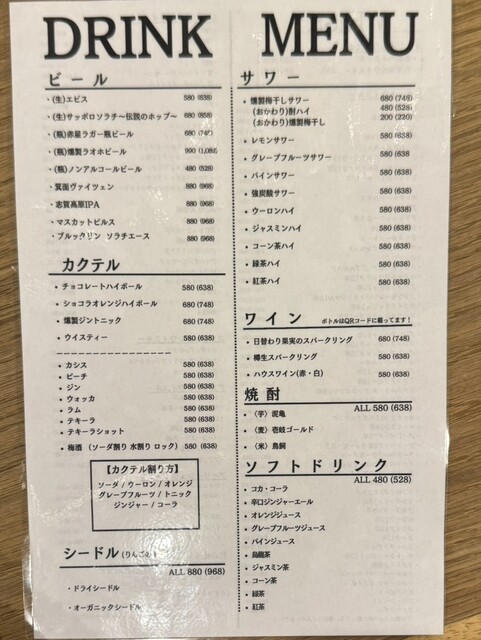 DRINK MENU
ビール
・(生)エビス 580 (638)
・(生)サッポロソラチ～伝説のホップ～ 680 (858)
・(瓶)赤星ラガー瓶ビール 680 (748)
・(瓶)燻製ラオホビール 990 (1,089)
・(瓶)ノンアルコールビール 480 (528)
・箕面ヴァイツェン 880 (968)
・志賀高原IPA 880 (968)
・マスカットピルス 880 (968)
・ブルックリン ソラチエース 880 (968)
カクテル
・チョコレートハイボール 580 (638)
・ショコラオレンジハイボール 680 (748)
・燻製ジントニック 680 (748)
・ウイスティー 580 (638)
・カシス 580 (638)
・ピーチ 580 (638)
・ジン 580 (638)
・ウォッカ 580 (638)
・ラム 580 (638)
・テキーラ 580 (638)
・テキーラショット 580 (638)
・梅酒 (ソーダ割り 水割り ロック) 580 (638)
【カクテル割り方】
ソーダ / ウーロン / オレンジ
グレープフルーツ / トニック
ジンジャー / コーラ
シードル (りんごの)
ALL 880 (968)
・ドライシードル
・オーガニックシードル
サワー
・燻製梅干しサワー 680 (748)
(おかわり)酎ハイ 480 (528)
(おかわり)燻製梅干し 200 (220)
・レモンサワー 580 (638)
・グレープフルーツサワー 580 (638
・パインサワー 580 (638)
・強炭酸サワー 580 (638)
・ウーロンハイ 580 (638)
・ジャスミンハイ 580 (638)
・コーン茶ハイ 580 (638)
・緑茶ハイ 580 (638)
・紅茶ハイ 580 (638)
ワイン ボトルはQRコードに載ってます！
・日替わり果実のスパークリング 680 (748)
・樽生スパークリング 580 (638)
・ハウスワイン(赤・白) 580 (638)
焼酎
ALL 580 (638)
・〈芋〉泥亀
・〈麦〉壱岐ゴールド
・〈米〉鳥飼
ソフトドリンク
ALL 480 (528)
・コカ・コーラ
・辛口ジンジャーエール
・オレンジジュース
・グレープフルーツジュース
・パインジュース
・烏龍茶
・ジャスミン茶
・コーン茶
・緑茶
・紅茶